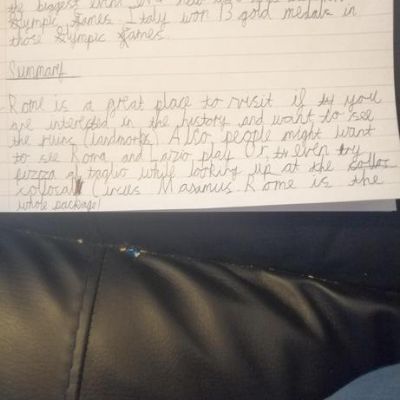 the biggest event
Olympic Games. Italy won 13 gold medals in
those Olympic Games.
Summary
Rome is a great place to visit if you
are interested in the history and want to see
the ruins (landmarks). Also, people might want
to see Roma and Lazio play. Or, even try
pizza al taglio while looking up at the
Circus Maxamus. Rome is the
whole package!